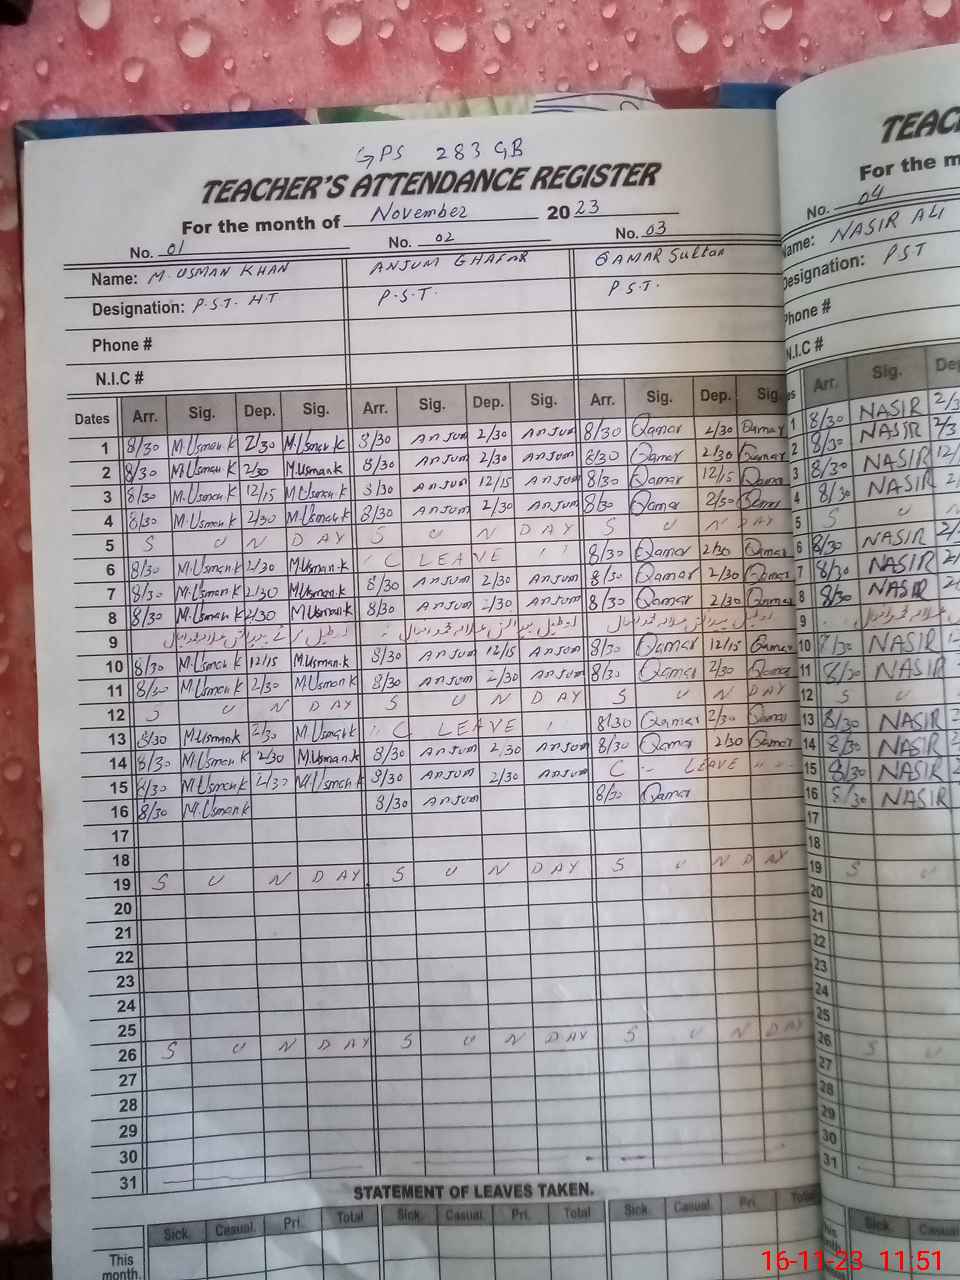 GPS 283 GB
TEACHER'S ATTENDANCE REGISTER
For the month of November 2023
No. 01 No. 02 No. 03
Name: M. USMAN KHAN ANJUM GHAFAR QAMAR Sultan
Designation: P.S.T. HT P.S.T. P.S.T.
Phone #
N.I.C #
Dates Arr. Sig. Dep. Sig. Arr. Sig. Dep. Sig. Arr. Sig. Dep. Sig.
1 8/30 M.Usman K 2/30 M.Usman K 8/30 Anjum 2/30 Anjum 8/30 Qamar 2/30 Qamar
2 8/30 M.Usman K 2/30 M.Usman K 8/30 Anjum 2/30 Anjum 8/30 Qamar 2/30 Qamar
3 8/30 M.Usman K 12/15 M.Usman K 8/30 Anjum 12/15 Anjum 8/30 Qamar 12/15 Qamar
4 8/30 M.Usman K 2/30 M.Usman K 8/30 Anjum 2/30 Anjum 8/30 Qamar 2/30 Qamar
5 S U N D AY S U N D AY S U N D AY
6 8/30 M.Usman K 2/30 M.Usman K C LEAVE 8/30 Qamar 2/30 Qamar
7 8/30 M.Usman K 2/30 M.Usman K 8/30 Anjum 2/30 Anjum 8/30 Qamar 2/30 Qamar
8 8/30 M.Usman K 2/30 M.Usman K 8/30 Anjum 2/30 Anjum 8/30 Qamar 2/30 Qamar
9
10 8/30 M.Usman K 12/15 M.Usman K 8/30 Anjum 12/15 Anjum 8/30 Qamar 12/15 Qamar
11 8/30 M.Usman K 2/30 M.Usman K 8/30 Anjum 2/30 Anjum 8/30 Qamar 2/30 Qamar
12 S U N D AY S U N D AY S U N D AY
13 8/30 M.Usman K 2/30 M.Usman K C LEAVE 8/30 Qamar 2/30 Qamar
14 8/30 M.Usman K 2/30 M.Usman K 8/30 Anjum 2/30 Anjum 8/30 Qamar 2/30 Qamar
15 8/30 M.Usman K 2/30 M.Usman K 8/30 Anjum 2/30 Anjum C LEAVE
16 8/30 M.Usman K 8/30 Anjum 8/30 Qamar
17
18
19 S U N D AY S U N D AY S U N D AY
20
21
22
23
24
25
26 S U N D AY S U N D AY S U N D AY
27
28
29
30
31
STATEMENT OF LEAVES TAKEN.
Sick. Casual. Pri. Total Sick. Casual. Pri. Total Sick. Casual. Pri. Total
This month.
TEAC
For the m
No. 04
Name: NASIR ALI
Designation: PST
Phone #
N.I.C #
Arr. Sig. Dep
1 8/30 NASIR 2/3
2 8/30 NASIR 2/3
3 8/30 NASIR 12/
4 8/30 NASIR 2/
5 S U N
6 8/30 NASIR 2/3
7 8/30 NASIR 2/
8 8/30 NASIR 2/
9
10 NASIR
11 8/30 NASIR 2
12 S U
13 8/30 NASIR 2
14 8/30 NASIR 2
15 8/30 NASIR 2
16 8/30 NASIR
17
18
19 S U
20
21
22
23
24
25
26 S U
27
28
29
30
31
Sick. Casual
16-11-23 11:51